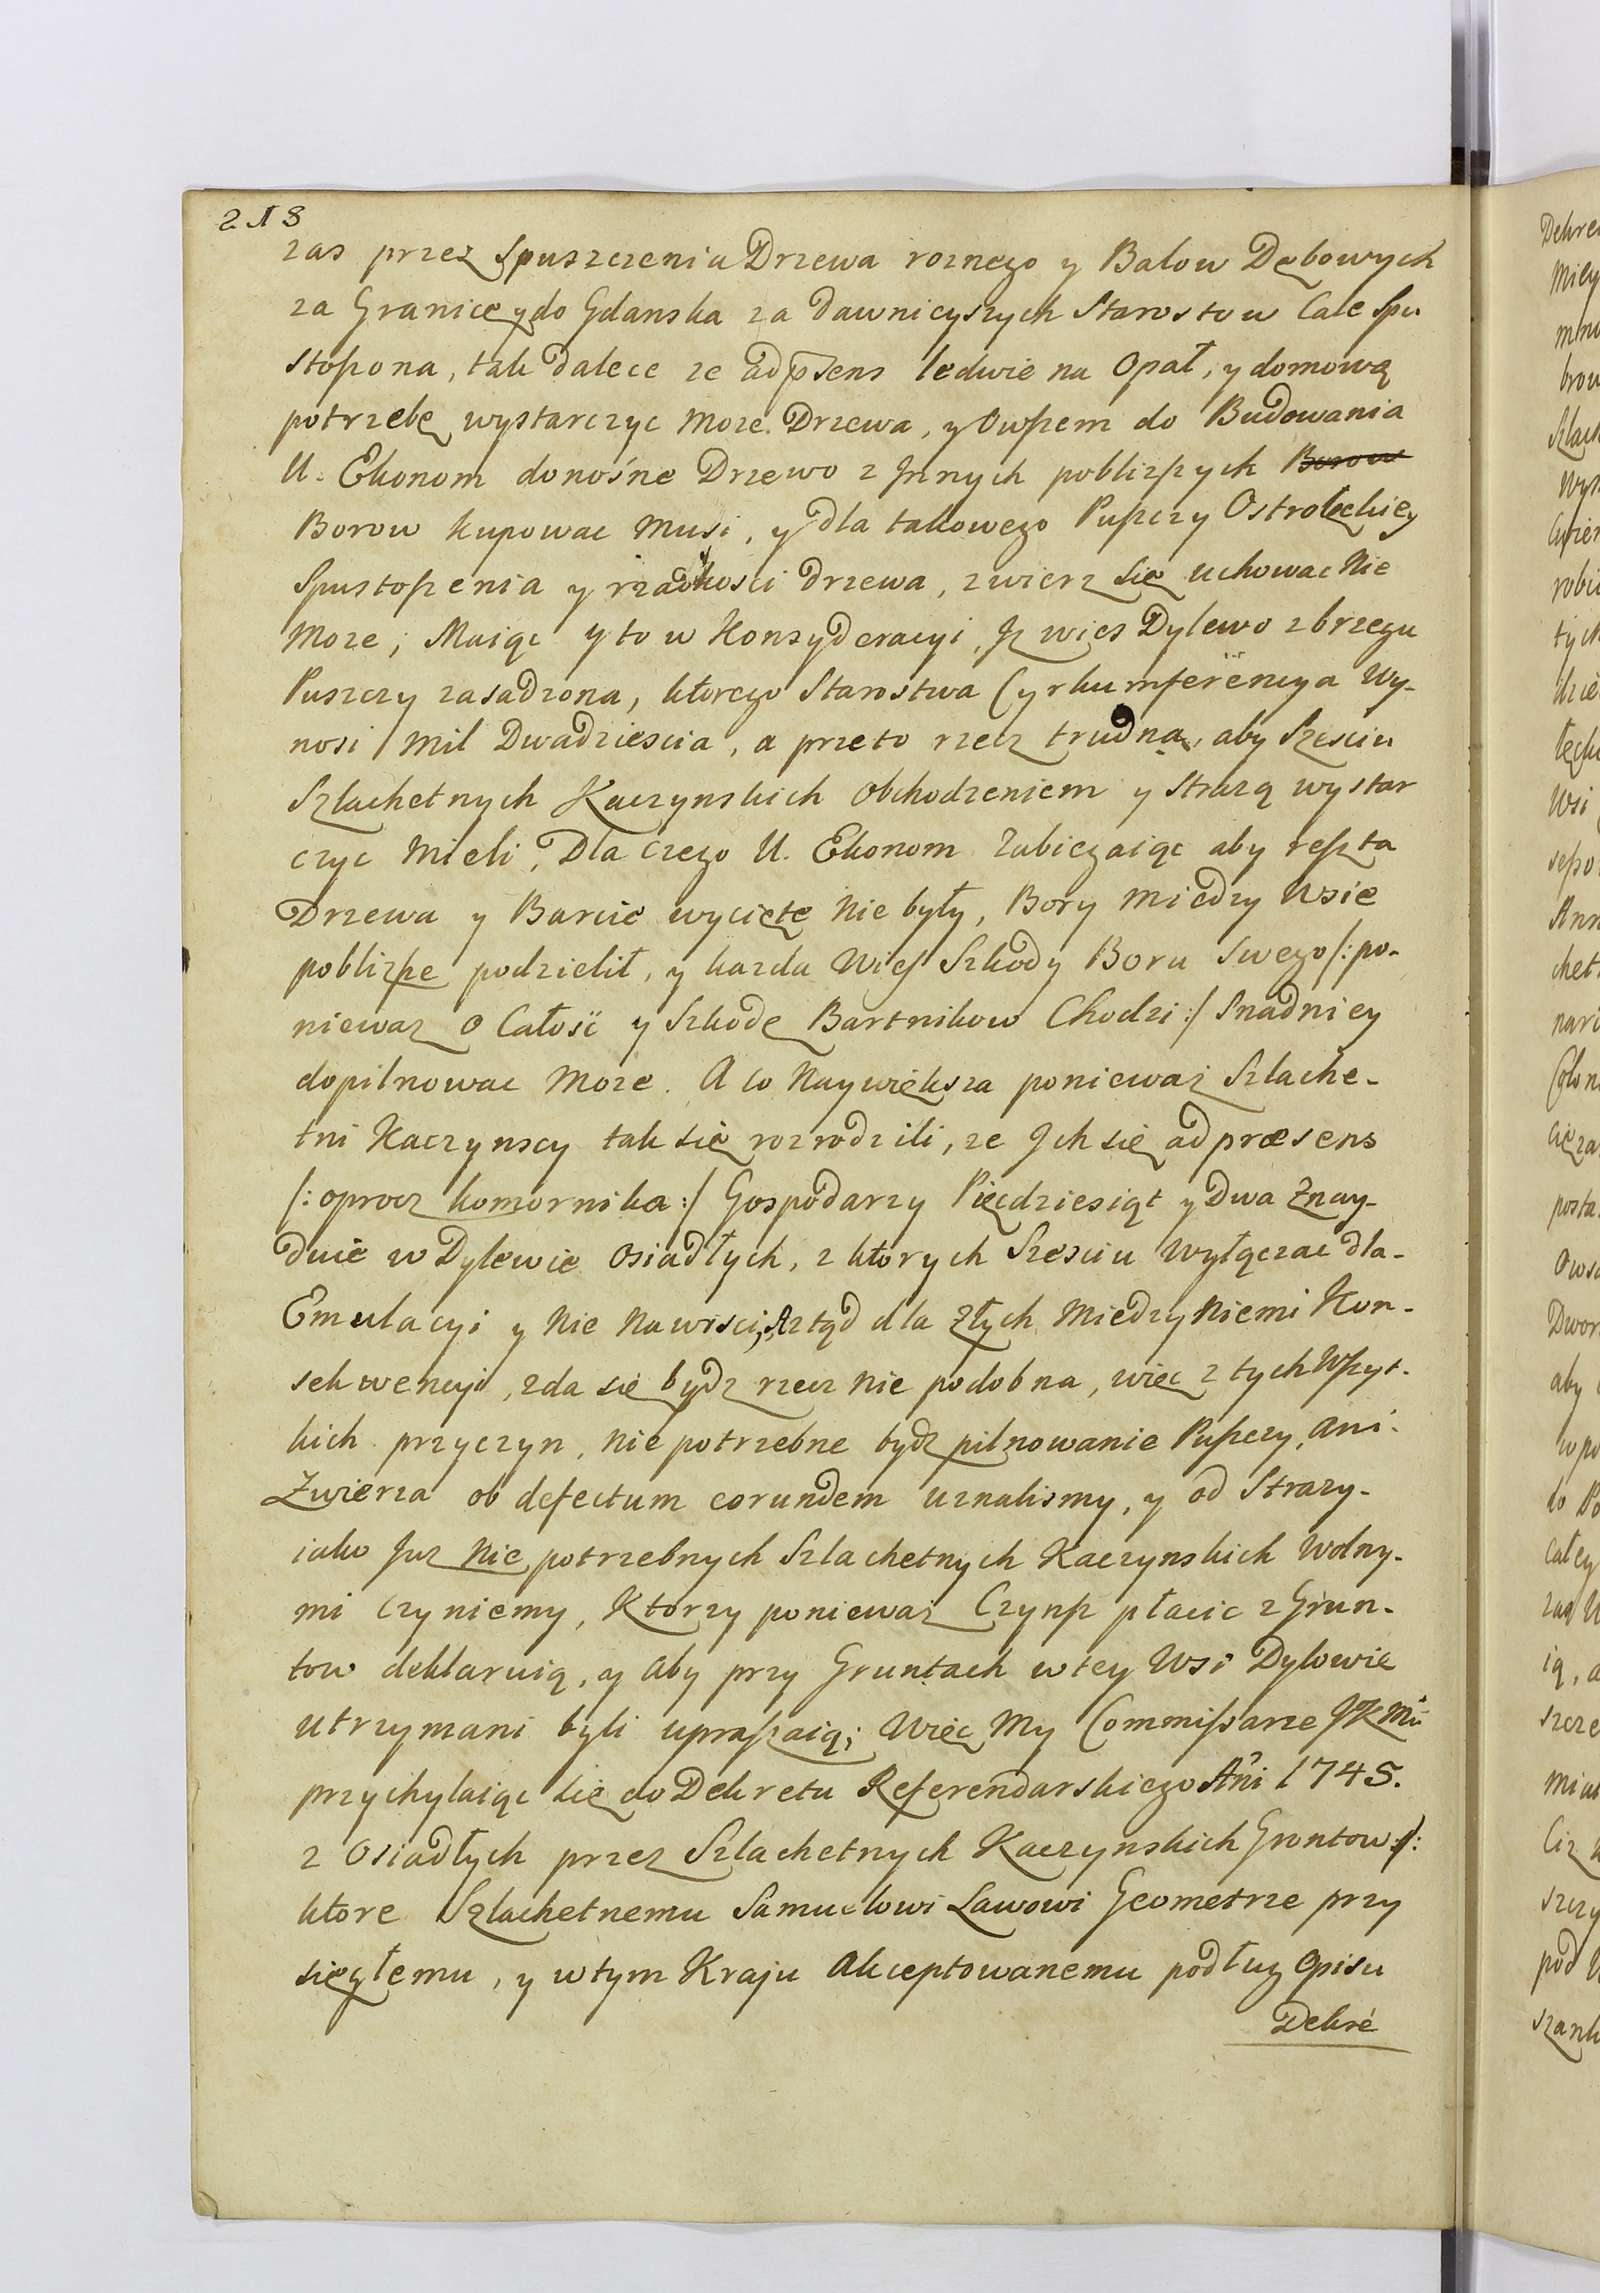 218
zas przez Spuszczenia Drzewa roznego y Balow Dębowych
za Granicę y do Gdanska za Dawnieyszych Starostow Cale Spu
stoszona, tak Dalece ze adpsens ledwie na Opał, y domową
potrzebę wystarczyc moze Drzewa, y Owszem do Budowania
U. Ekonom donośne Drzewo z Innych pobliszych Borow
Borow kupowac musi, y dla takowego Puszczy Ostrołęckiey
Spustoszenia y rzadkosci drzewa, zwierz się uchowac Nie
Moze, Maiąc y to w Konsyderacyi, Jz wies Dylewo z brzegu
Puszczy zasadzona, ktorego Starostwa Cyrkumferencya Wy-
nosi Mil Dwadziescia, a przeto rzecz trudna, aby Szesciu
Szlachetnych Kaczynskich Obchodzeniem y Strazą wystar
czyc Mieli, Dla czego U. Ekonom Zabiegaiąc aby reszta
Drzewa y Barcie wycięte Nie były, Bory Miedzy Wsie
poblisze podzielił, y kazda Wies Szkody Boru Swego /: po-
niewaz o Całosc y Szkodę Bartnikow Chodzi :/ Snadniey
dopilnowac Moze. A co Naywieksza poniewaz Szlache-
tni Kaczynscy tak się rozrodzili, ze Jch się ad præsens
/: oprocz komornika :/ Gospodarzy Pięcdziesiąt y Dwa Znay-
duie w Dylewie Osiadłych, z ktorych Szesciu Wyłączac dla-
Emulacyi y Nie Nawisci, Sztąd dla Złych Miedzy Niemi Kon-
sekwencyi, zda się bydz rzecz Nie podobna, więc z tych Wszyt-
kich przyczyn, Nie potrzebne bydz pilnowanie Puszczy, ani-
Zwierza ob defectum eorundem uznalismy, y od Strazy-
iako Juz Nie potrzebnych Szlachetnych Kaczynskich Wolny-
mi Czyniemy, Ktorzy poniewaz Czynsz płacic z Grun-
tow deklaruią, y Aby przy Gruntach w tey Wsi Dylowie
Utrzymani byli upraszaią; Więc My Commissarze JK Mci
przychylaiąc się do Dekretu Referendarskiego Ani 1745.
z Osiadłych przez Szlachetnych Kaczynskich Grontow /:
ktore Szlachetnemu Samuelowi Lawowi Geometrze przy
sięgłemu, y w tym Kraju Akceptowanemu podług Opisu
Dekre